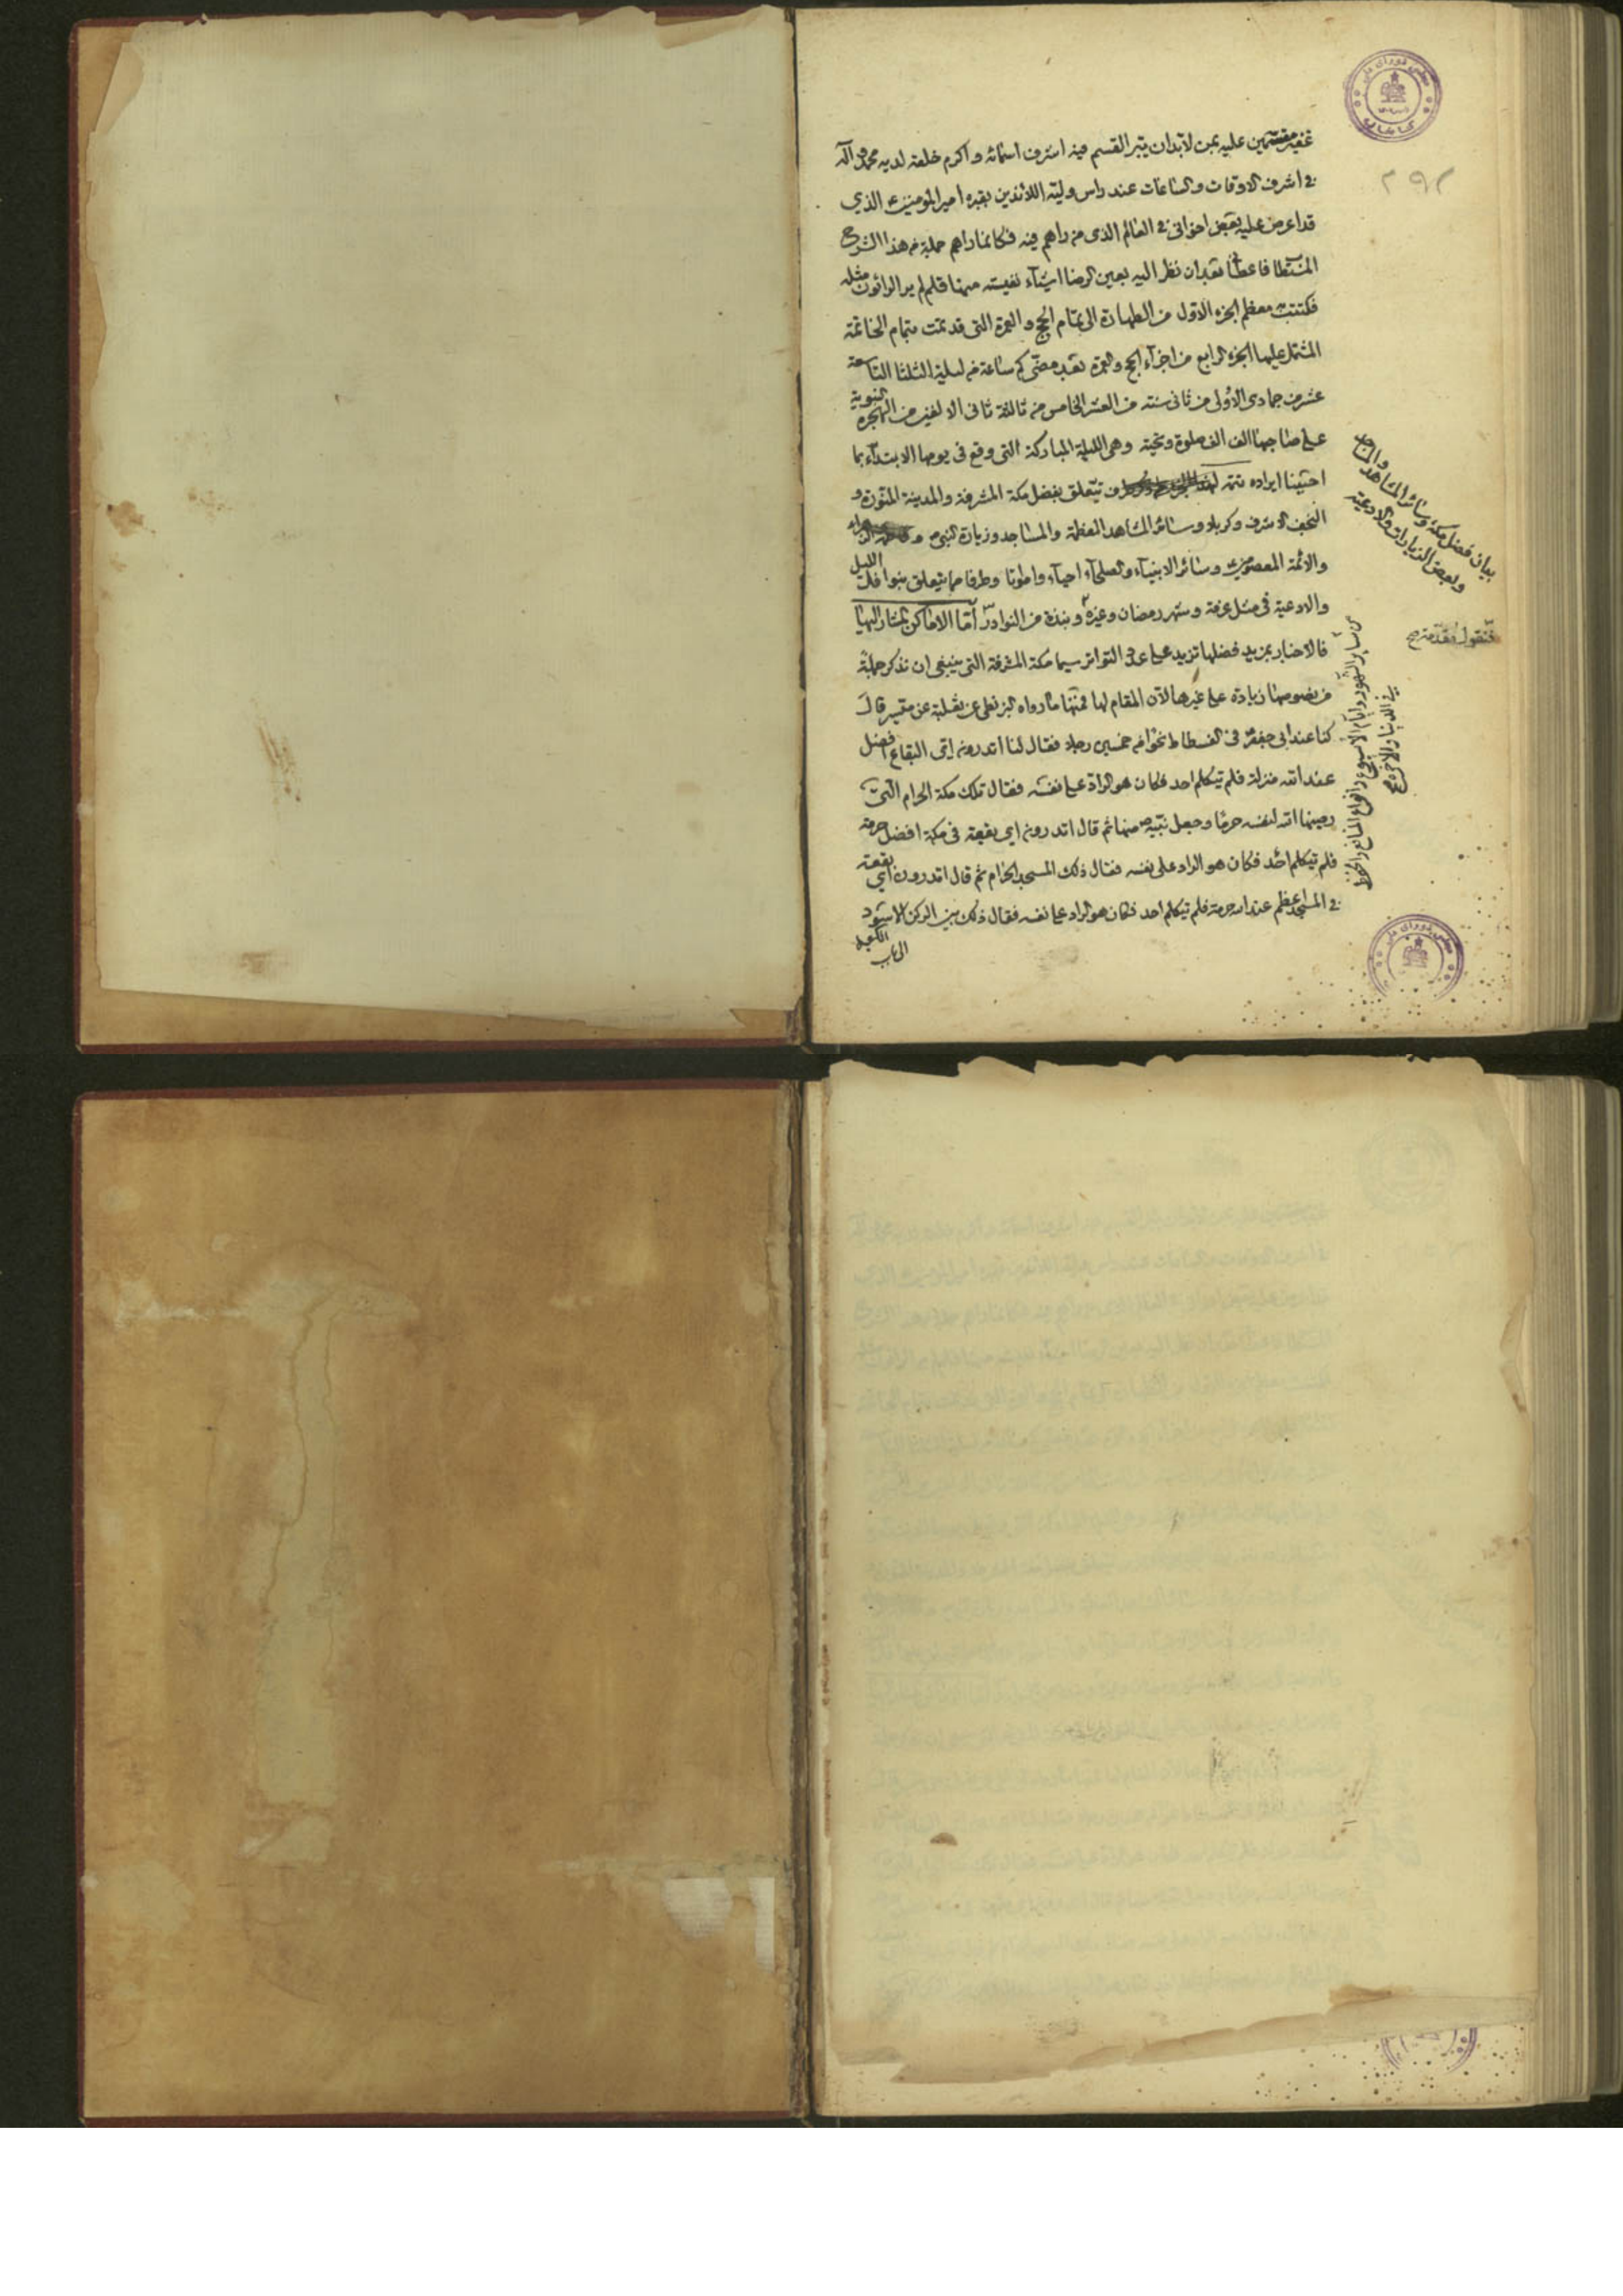 مقسمين عليه بمن لابد ان يبر القسم فيه اشرف اسمائه و اكرم خلقه لديه محمد و آله
في اشرف الاوقات و الساعات عند راس وليه اللائذين بقبره امير المؤمنين الذي
قد اعرض عليه بعض اخواني في العالم الذي من راهم فيه فكانما راهم جملة من هذا الشرح
فاعطانا بعد ان نظر اليه بعين الرضا اشياء نفيسه منها قلم لم ير الراؤن مثله
فكتبت معظم الجزء الاول من الطهارة الى تمام الحج و العمرة التي قد تمت بتمام الخاتمة
المشتمل عليها الجزء الرابع من اجزاء الحج و العمرة بعد مضي كم ساعة من ليلة الثلثا التاسعة
عشر من جمادى الاولى من ثاني سنه من العشر الخامس من ثالثة ثاني الالفين من الهجرة النبوية
على صاحبها الف الف صلوة و تحية وهي الليلة المباركة التي وقع في يومها الابتداء بما
احببنا ايراده تتمة يتعلق بفضل مكة المشرفة والمدينة المنورة و
النجف الاشرف و كربلا و سائر المشاهد المعظمة والمساجد و زيارة النبي ص و
والائمة المعصومين و سائر الانبياء و الصلحاء احياء و امواتا و طرفا مما يتعلق بنوافل الليل
والادعية في مثل عرفة و شهر رمضان و غيره و نبذة من النوادر اما الاماكن المشار اليها
فالاخبار بمزيد فضلها تزيد على عدد التواتر سيما مكة المشرفة التي ينبغي ان نذكر جملة
من نصوصها زيادة على غيرها لان المقام لها فمنها ما رواه البزنطي عن ثعلبة عن ميسر قال
كنا عند ابي جعفر في الفسطاط نحوا من خمسين رجلا فقال لنا اتدرون اي البقاع افضل
عند الله منزلة فلم يتكلم احد فكان هو الراد على نفسه فقال تلك مكة الحرام التي
رضيها الله لنفسه حرما و جعل بيته منها ثم قال اتدرون اي بقعة في مكة افضل حرمة
فلم يتكلم احد فكان هو الراد على نفسه فقال ذلك المسجد الحرام ثم قال اتدرون اي بقعة
في المسجد اعظم عند الله حرمة فلم يتكلم احد فكان هو الراد على نفسه فقال ذلك بين الركن الاسود
الى باب الكعبة
بيان فضل مكة و سائر المشاهد و المساجد
و بعض الزيارات والادعية
فنقول مقدمة
من سائر الشهور و ايام الاسبوع و انواع المنافع و الحفظ
في الدنيا و الآخرة
مجلس شورای ملی
کتابخانه
مجلس شورای ملی